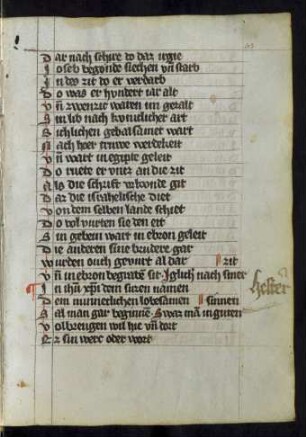 Dar nach schire do daz ergie
Joseb begonde siechen vn̄ starb
In der zit do er verdarb
Do was er hvndert iar alt
Vn̄ zwenzic waren im gezalt
Sin lib nach kvniclicher art
Sichlichen gebalsamet wart
Nach hoer truwe werdekeit
Vn̄ wart in egipte geleit
Do ruete er vntz an die zit
Als die schrift vrkvnde git
Daz die israhelische diet
Von dem selben lande schiet
Do volvurten sie den eit
Sin gebein wart in ebron geleit
Die anderen sine brudere gar
Wurden ouch gevurt al dar ‖ zit
Vn̄ in ebron begrabē sit · Jglich nach siner
In ih̄u xp̄i dem suzen namen
Dem minnerlichen lobesamen ‖ sinnen
Sal man gar beginnē · Swaz mā in guten
Volbrengen wil hie vn̄ dort
Er sin werc oder wort
Hester